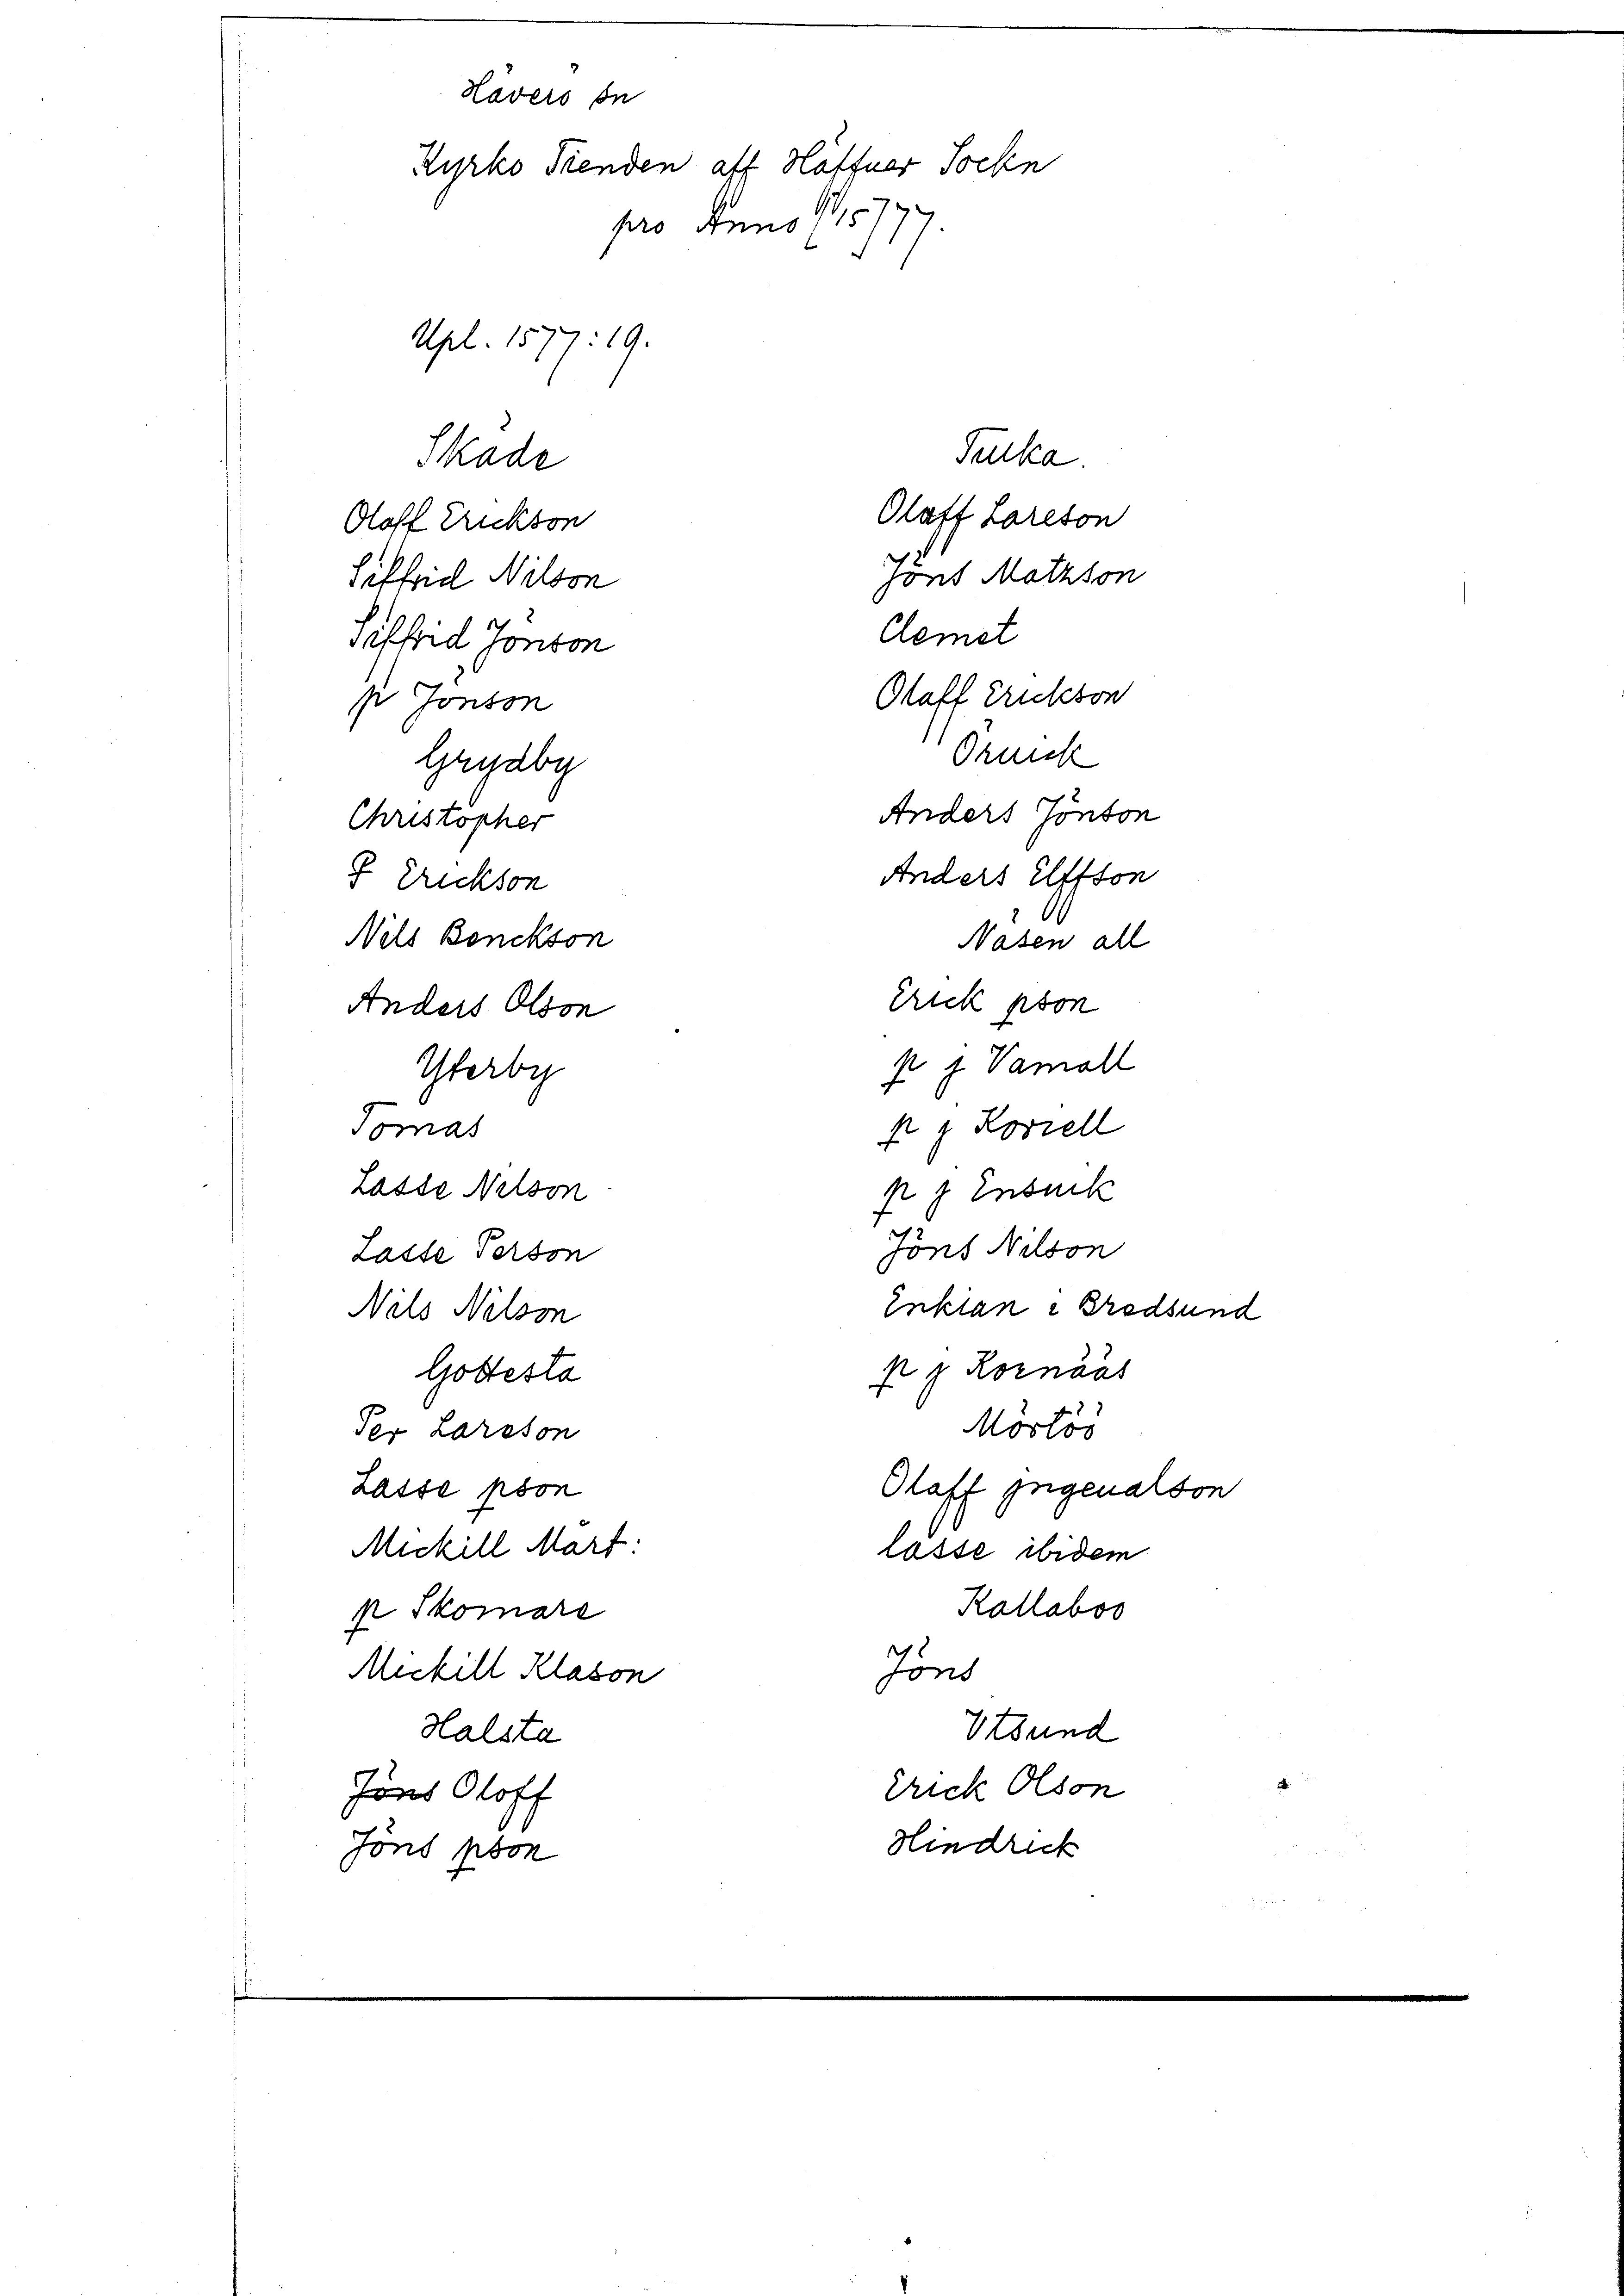 Häverö sn
Kyrko Tienden aff Häffuer Sockn
pro Anno 1577.
Upl. 1577:19.
Skäde
Oloff Erickson
Siffrid Nilson
Siffrid Jönson
p Jönson
Grydby
Christopher
P Erickson
Nils Benckson
Anders Olson
Yterby
Tomas
Lasse Nilson
Lasse Person
Nils Nilson
Gottesta
Per Lareson
Lasse pson
Mickill Märt:
p Skomare
Mickill Klason
Halsta
Jöns Oloff
Jöns pson
Tulka.
Olaff Lareson
Jöns Matzson
Clemet
Olaff Erickson
Öruick
Anders Jönson
Anders Elffson
Näsen all
Erick pson
p j Vamall
p j Korsell
p j Ensuik
Jöns Nilson
Enkian i Bredsund
p j Kornääs
Mörtöö
Olaff jngeualson
lasse ibidem
Kallaboo
Jöns
Vtsund
Erick Olson
Hindrick